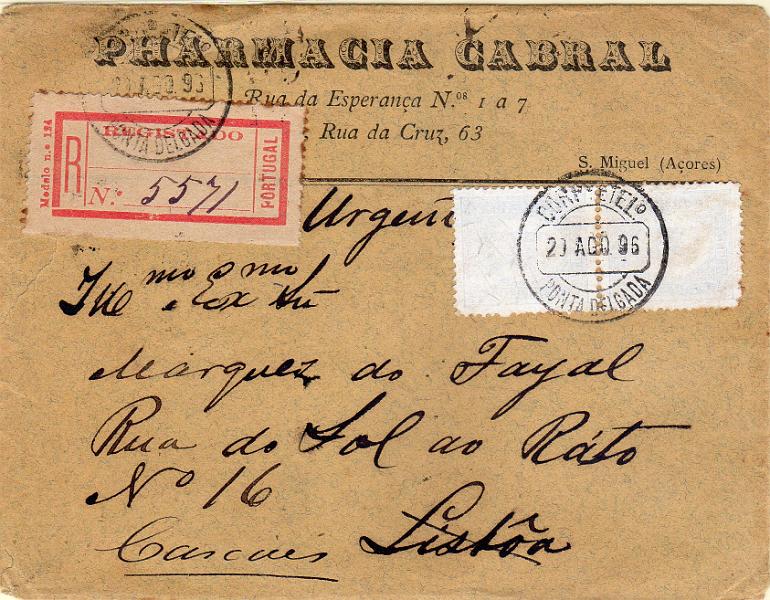 PHARMACIA CABRAL
Rua da Esperança N.os 1 a 7
Rua da Cruz, 63
S. Miguel (Açores)
CORRº E TELº
20 AGO 96
PONTA DELGADA
Modelo n.º 124
REGISTADO
R
N.º 5571
PORTUGAL
CORRº E TELº
20 AGO 96
PONTA DELGADA
Urgente
Illmo e Exmo Sñr
Marquez do Fayal
Rua do Sol ao Ráto
Nº 16
Cascaes Lisbôa